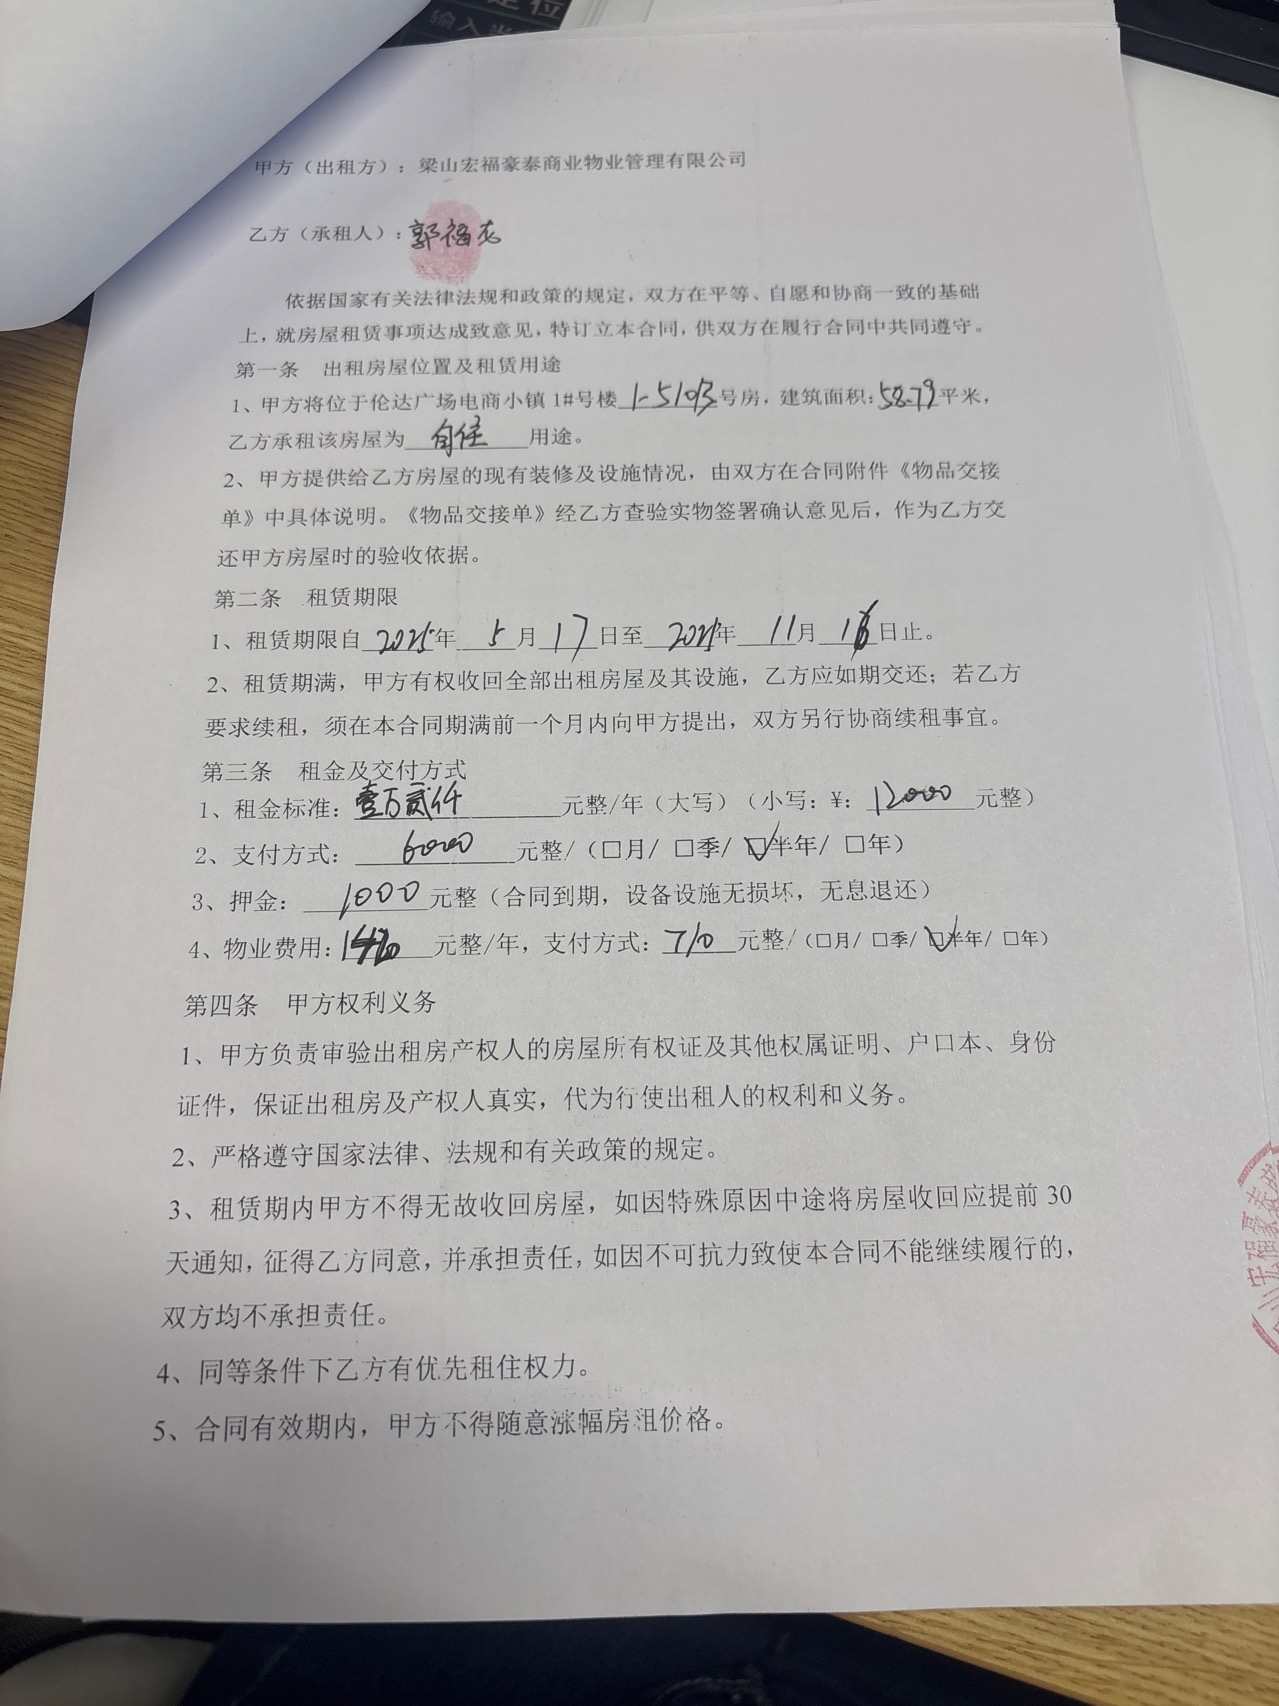 输入
甲方（出租方）：梁山宏福豪泰商业物业管理有限公司
乙方（承租人）：郭福志
依据国家有关法律法规和政策的规定，双方在平等、自愿和协商一致的基础
上，就房屋租赁事项达成致意见，特订立本合同，供双方在履行合同中共同遵守。
第一条 出租房屋位置及租赁用途
1、甲方将位于伦达广场电商小镇1#号楼 号房，建筑面积：58.79平米，
乙方承租该房屋为 自住 用途。
2、甲方提供给乙方房屋的现有装修及设施情况，由双方在合同附件《物品交接
单》中具体说明。《物品交接单》经乙方查验实物签署确认意见后，作为乙方交
还甲方房屋时的验收依据。
第二条 租赁期限
1、租赁期限自 2025年 5 月 17 日至 2025年 11 月 16 日止。
2、租赁期满，甲方有权收回全部出租房屋及其设施，乙方应如期交还；若乙方
要求续租，须在本合同期满前一个月内向甲方提出，双方另行协商续租事宜。
第三条 租金及交付方式
1、租金标准：壹万贰仟 元整/年（大写）（小写：¥：12000 元整）
2、支付方式： 6000 元整/（□月/ □季/ ☑半年/ □年）
3、押金： 1000 元整（合同到期，设备设施无损坏，无息退还）
4、物业费用： 元整/年，支付方式：710 元整/（□月/ □季/ ☑半年/ □年）
第四条 甲方权利义务
1、甲方负责审验出租房产权人的房屋所有权证及其他权属证明、户口本、身份
证件，保证出租房及产权人真实，代为行使出租人的权利和义务。
2、严格遵守国家法律、法规和有关政策的规定。
3、租赁期内甲方不得无故收回房屋，如因特殊原因中途将房屋收回应提前 30
天通知，征得乙方同意，并承担责任，如因不可抗力致使本合同不能继续履行的，
双方均不承担责任。
4、同等条件下乙方有优先租住权力。
5、合同有效期内，甲方不得随意涨幅房租价格。
宏福豪泰